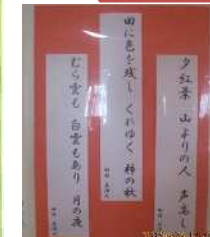 夕紅葉 山よりの人 声高し
田に色を残し くれゆく 柿の秋
むら雲も 白雲もあり 月の夜